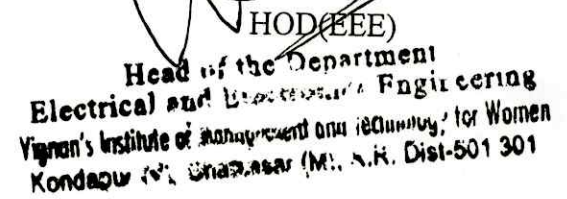 HOD(EEE)
Head of the Department
Electrical and Engineering
Vignan's Institute of Management and Technology, for Women
Kondapur (V), (M), Dist-501 301